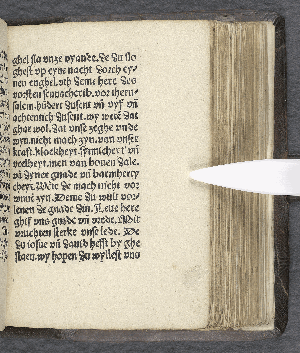 ghel sla vnze vyande. de du slo
ghest vp eyne nacht dorch ey-
nen enghel. vth deme here des
vorsten sennacherib. vor iheru-
salem. hūdert dusent vñ vyf vñ
achtentich dusent. wy wetē dat
ghar wol. dat vnse zeghe vnde
wyn. nicht mach zyn. van vnser
kraft. klockheyt.
velheyt. men van bouen dale.
vñ dyner gnade vñ barmhercy
cheyt. Wēte de mach nicht vor
wnnē zyn. Deme du wult vor-
lenen de gnade dyn. here
ghif vns gnade vñ vrede. Mit
vruchten sterke vnse lede. De
du iosue vñ dauid hefst by ghe
staen. wy hopen du wyllest vns